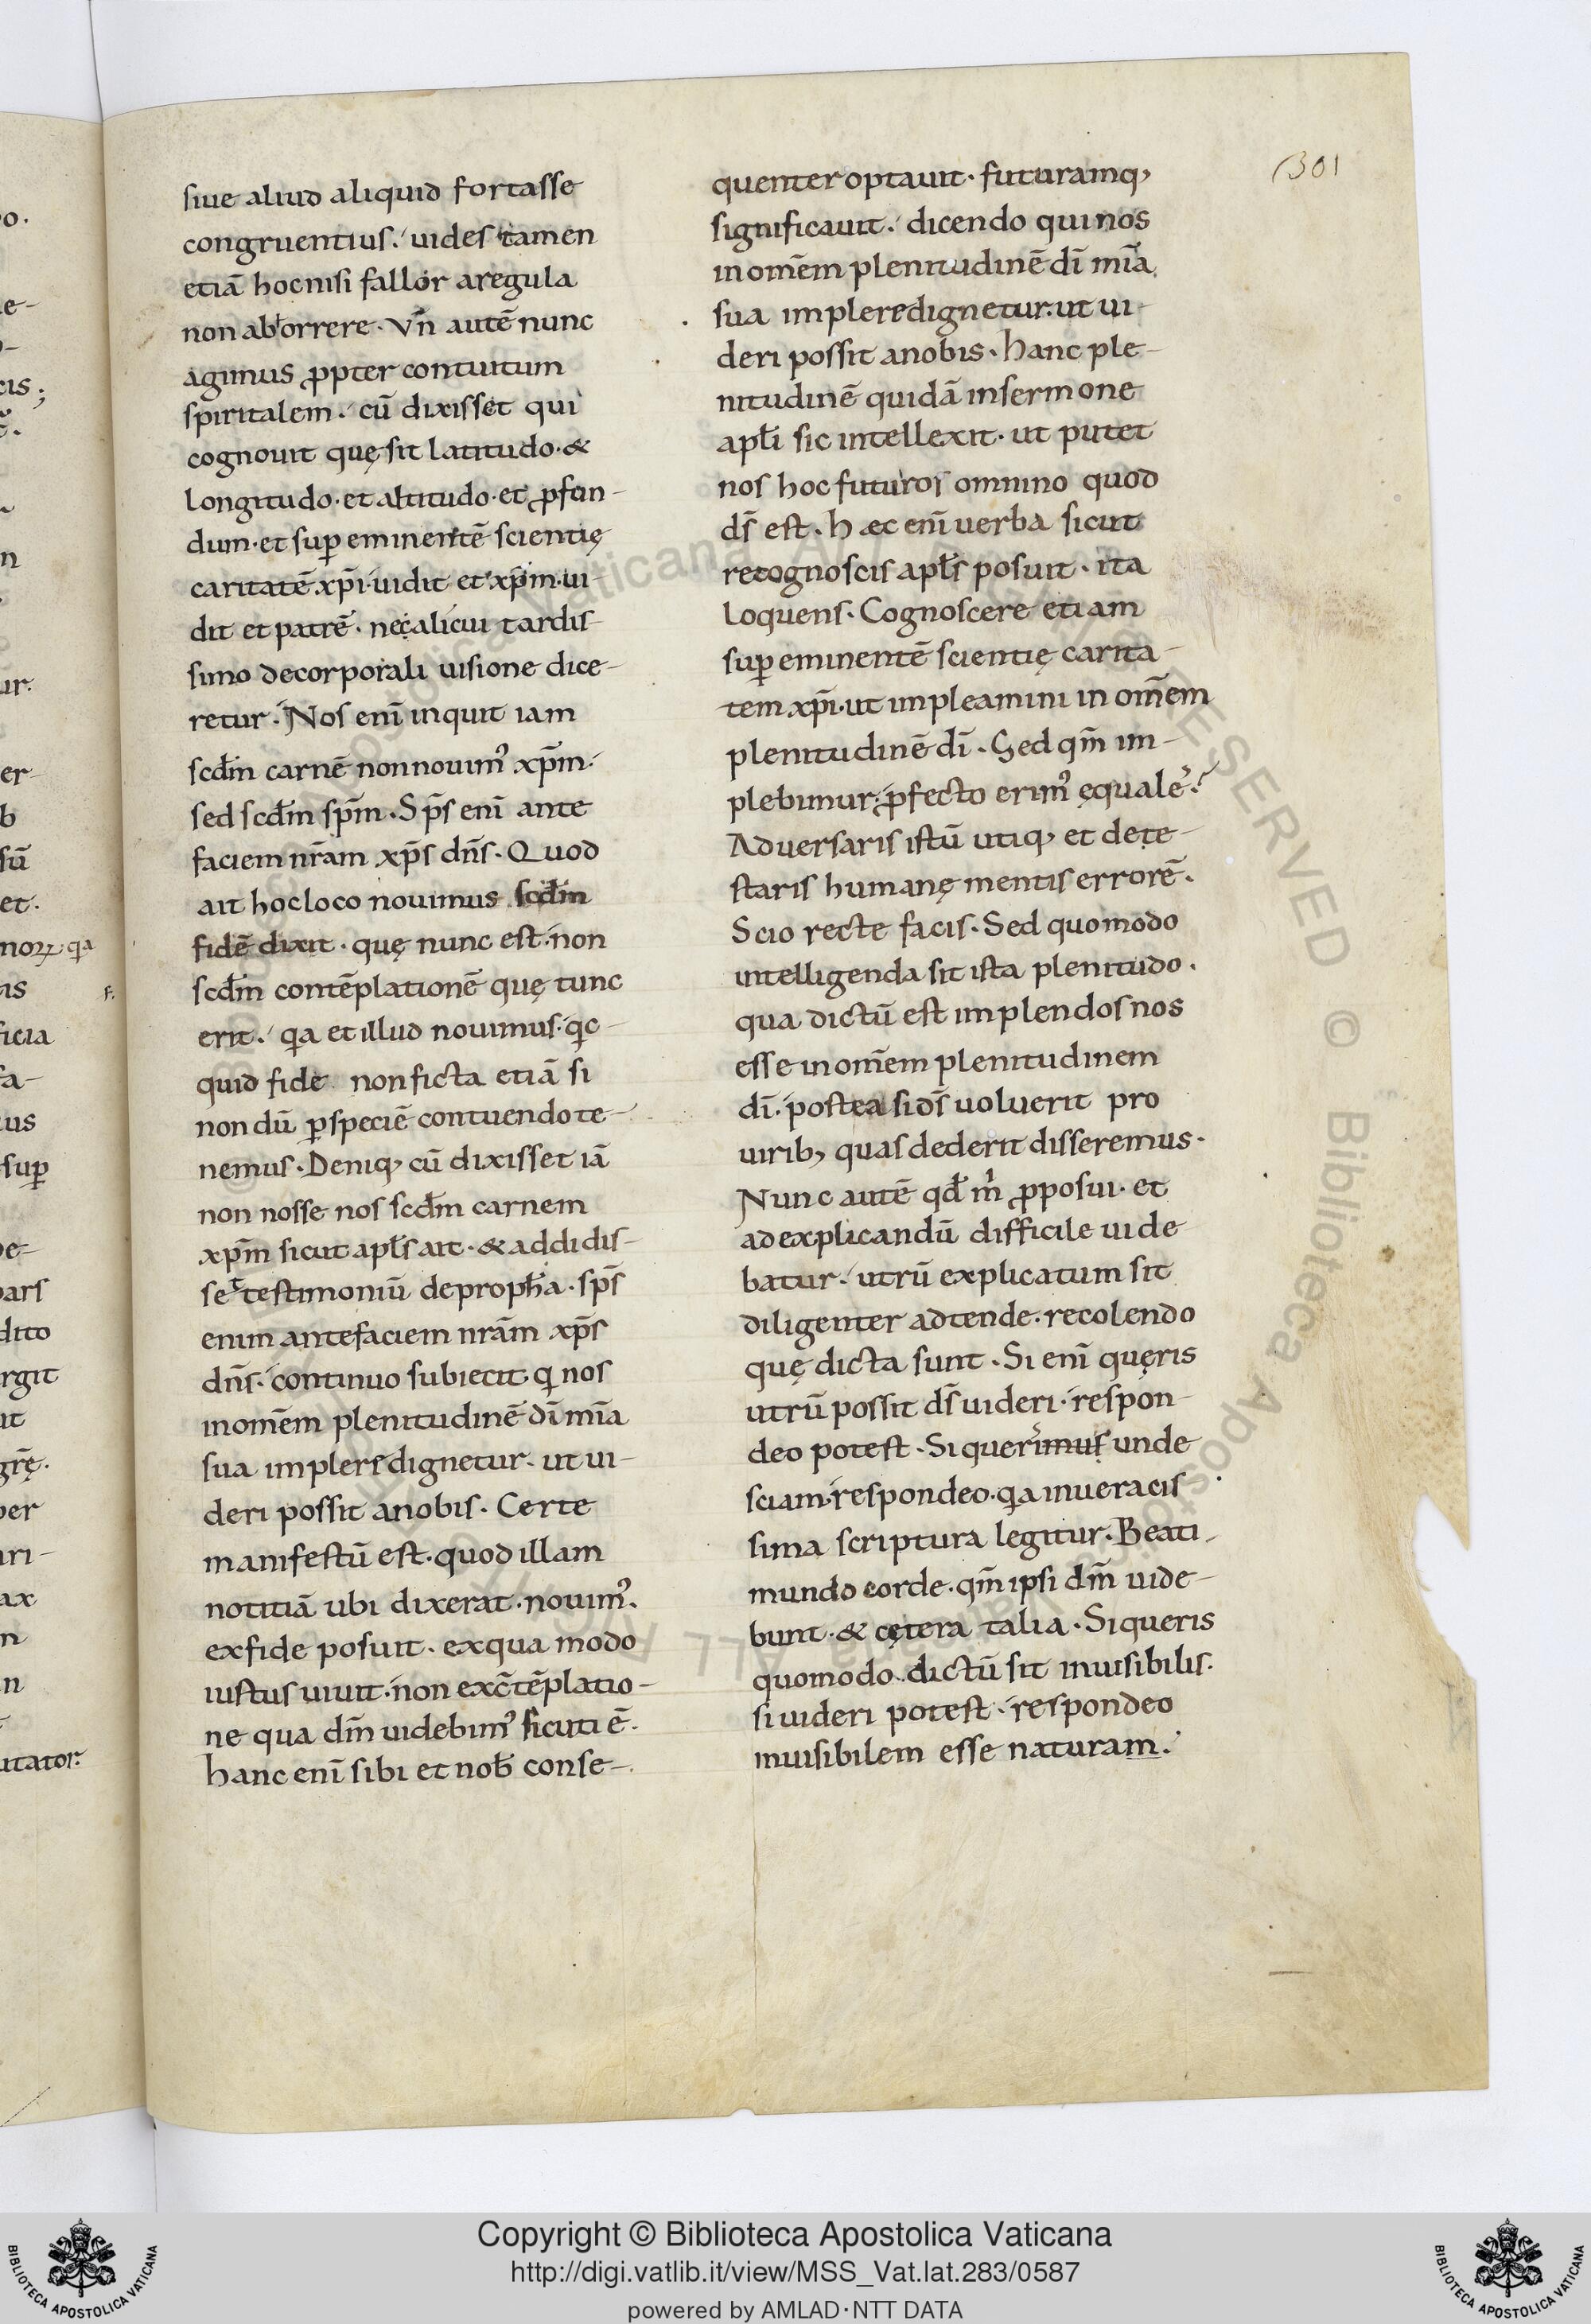 siue aliud aliquid fortasse
congruentius. uides tamen
etiā hoc nisi fallor a regula
non abhorrere. Vñ autē nunc
agimus ꝓpter contuitum
spiritalem. cū dixisset qui
cognouit quę sit latitudo. &
longitudo. et altitudo. et ꝓfun-
dum. et suꝑeminentē scientię
caritatē xp̄i. uidit et xp̄m. ui-
dit et patrē. nec alicui tardis-
simo de corporali uisione dice-
retur. Nos enī inquit iam
scd̄m carnē non nouim᾽ xp̄m.
sed scd̄m sp̄m. Sp̄s enī ante
faciem nr̄am xp̄s dn̄s. Quod
ait hoc loco nouimus scd̄m
fidē dixit. quę nunc est. non
scd̄m contēplationē quę tunc
erit. qa et illud nouimus. qc-
quid fide non ficta etiā si
nondū ꝑ speciē contuendo te-
nemus. Deniq, cū dixisset iā
non nosse nos scd̄m carnem
xp̄m sicut apl̄s ait. & addidis-
set testimoniū de proph̄a. sp̄s
enim ante faciem nr̄am xp̄s
dn̄s. continuo subiecit. q nos
in om̄em plenitudinē dī mīa
sua implere dignetur. ut ui-
deri possit a nobis. Certe
manifestū est. quod illam
notitiā ubi dixerat. nouim᾽.
ex fide posuit. ex qua modo
iustus uiuit. non ex c̄tēplatio-
ne qua dm̄ uidebim᾽ sicuti ē.
hanc enī sibi et nob̄ conse-
quenter optauit. futuramq,
significauit. dicendo qui nos
in om̄em plenitudinē dī mīa
sua implere dignetur. ut ui-
deri possit a nobis. hanc ple-
nitudinē quidā in sermone
apl̄i sic intellexit. ut putet
nos hoc futuros omnino quod
ds̄ est. hæc enī uerba sicut
recognoscis apl̄s posuit. ita
loquens. Cognoscere etiam
suꝑeminentē scientię carita-
tem xp̄i. ut impleamini in om̄em
plenitudinē dī. Sed qm̄ im-
plebimur. ꝓfecto erim᾽ ęquale᾽?
Aduersaris istū utiq, et dete-
staris humanę mentis errorē.
Scio recte facis. Sed quomodo
intelligenda sit ista plenitudo.
qua dictū est implendos nos
esse in om̄em plenitudinem
dī. postea si ds̄ uoluerit pro
uirib, quas dederit disseremus.
Nunc autē qd̄ m̄ ꝓposui. et
ad explicandū difficile uide-
batur. utrū explicatum sit
diligenter adtende. recolendo
quę dicta sunt. Si enī quęris
utrū possit ds̄ uideri. respon-
deo potest. Si querimus unde
sciam. respondeo. qa in ueracis-
sima scriptura legitur. Beati
mundo corde. qm̄ ipsi dm̄ uide-
bunt. & cętera talia. Si queris
quomodo dictū sit inuisibilis.
si uideri potest. respondeo
inuisibilem esse naturam.
301
Copyright © Biblioteca Apostolica Vaticana
http://digi.vatlib.it/view/MSS_Vat.lat.283/0587
powered by AMLAD·NTT DATA